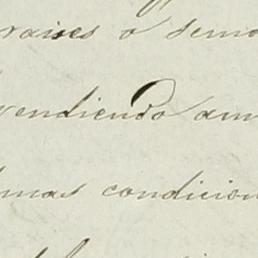 raises o semo
vendiendo am
mas condicion